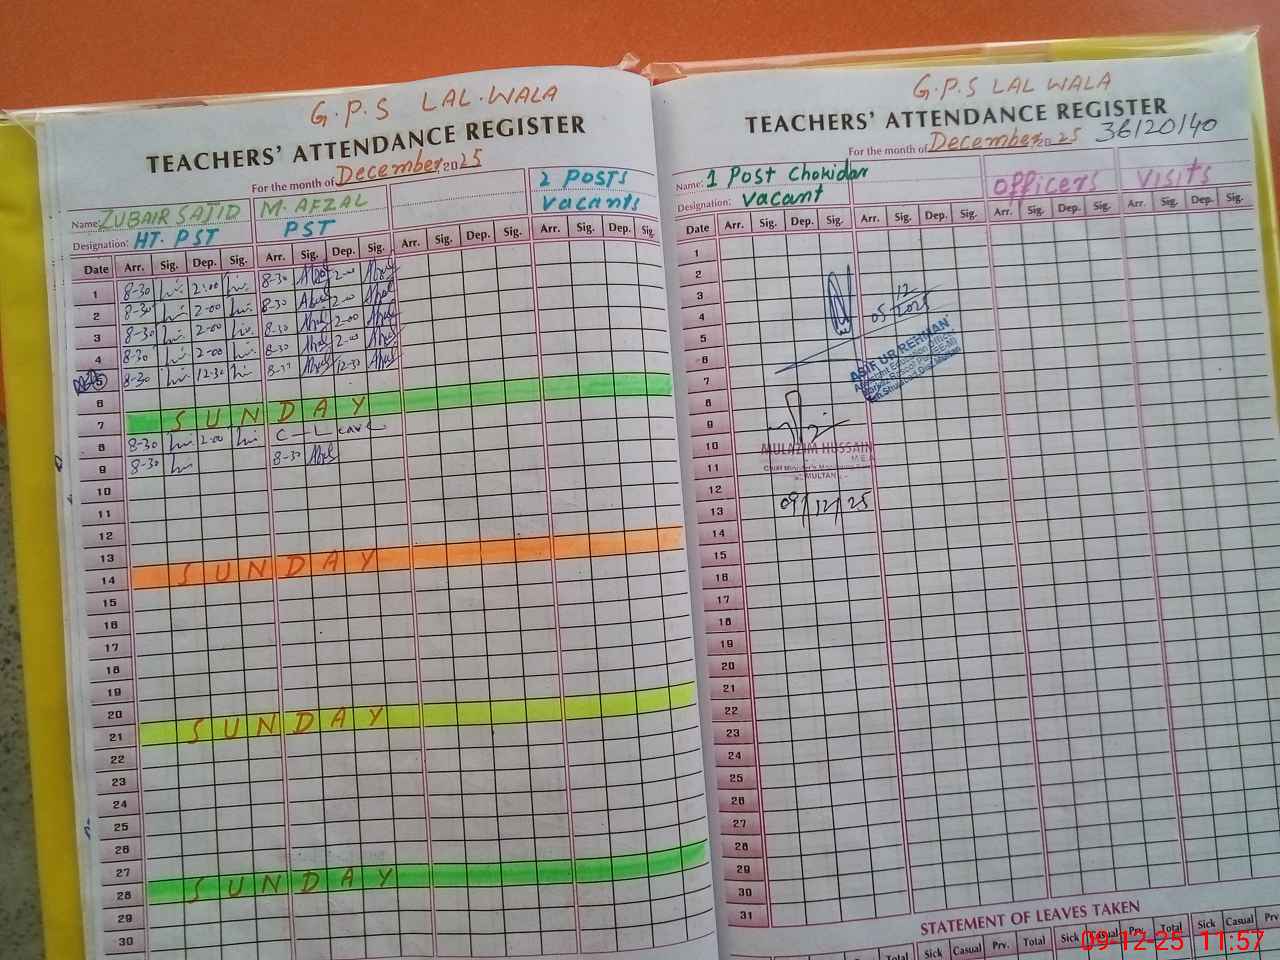 G.P.S LAL.WALA
TEACHERS' ATTENDANCE REGISTER
For the month of December 2025
Name: ZUBAIR SAJID M. AFZAL 2 POSTS
Designation: HT. PST PST Vacants
Date Arr. Sig. Dep. Sig. Arr. Sig. Dep. Sig. Arr. Sig. Dep. Sig. Arr. Sig. Dep. Sig.
1 8-30 2:00 8-30 2-00
2 8-30 2-00 8-30 2-00
3 8-30 2-00 8-30 2-00
4 8-30 2-00 8-30 2-00
5 8-30 12-30 12-30
6
7 SUNDAY
8 8-30 2-00 C-Leave
9 8-30 8-30
10
11
12
13
14 SUNDAY
15
16
17
18
19
20
21 SUNDAY
22
23
24
25
26
27
28 SUNDAY
29
30
G.P.S LAL WALA
TEACHERS' ATTENDANCE REGISTER
For the month of December 2025 36120140
Name: 1 Post Chokidar Officers Visits
Designation: Vacant
Arr. Sig. Dep. Sig. Arr. Sig. Dep. Sig. Arr. Sig. Dep. Sig. Arr. Sig. Dep. Sig.
1
2
3
4
5
6
7
8
9
10
11
12
13
14
15
16
17
18
19
20
21
22
23
24
25
26
27
28
29
30
31
05/12/2025
ASIF UR REHMAN
MULAZIM HUSSAIN
M.E.A
MULTAN
09/12/25
STATEMENT OF LEAVES TAKEN
Sick Casual Prv. Total Sick Casual Prv. Total Sick Casual Prv.
09-12-25 11:57